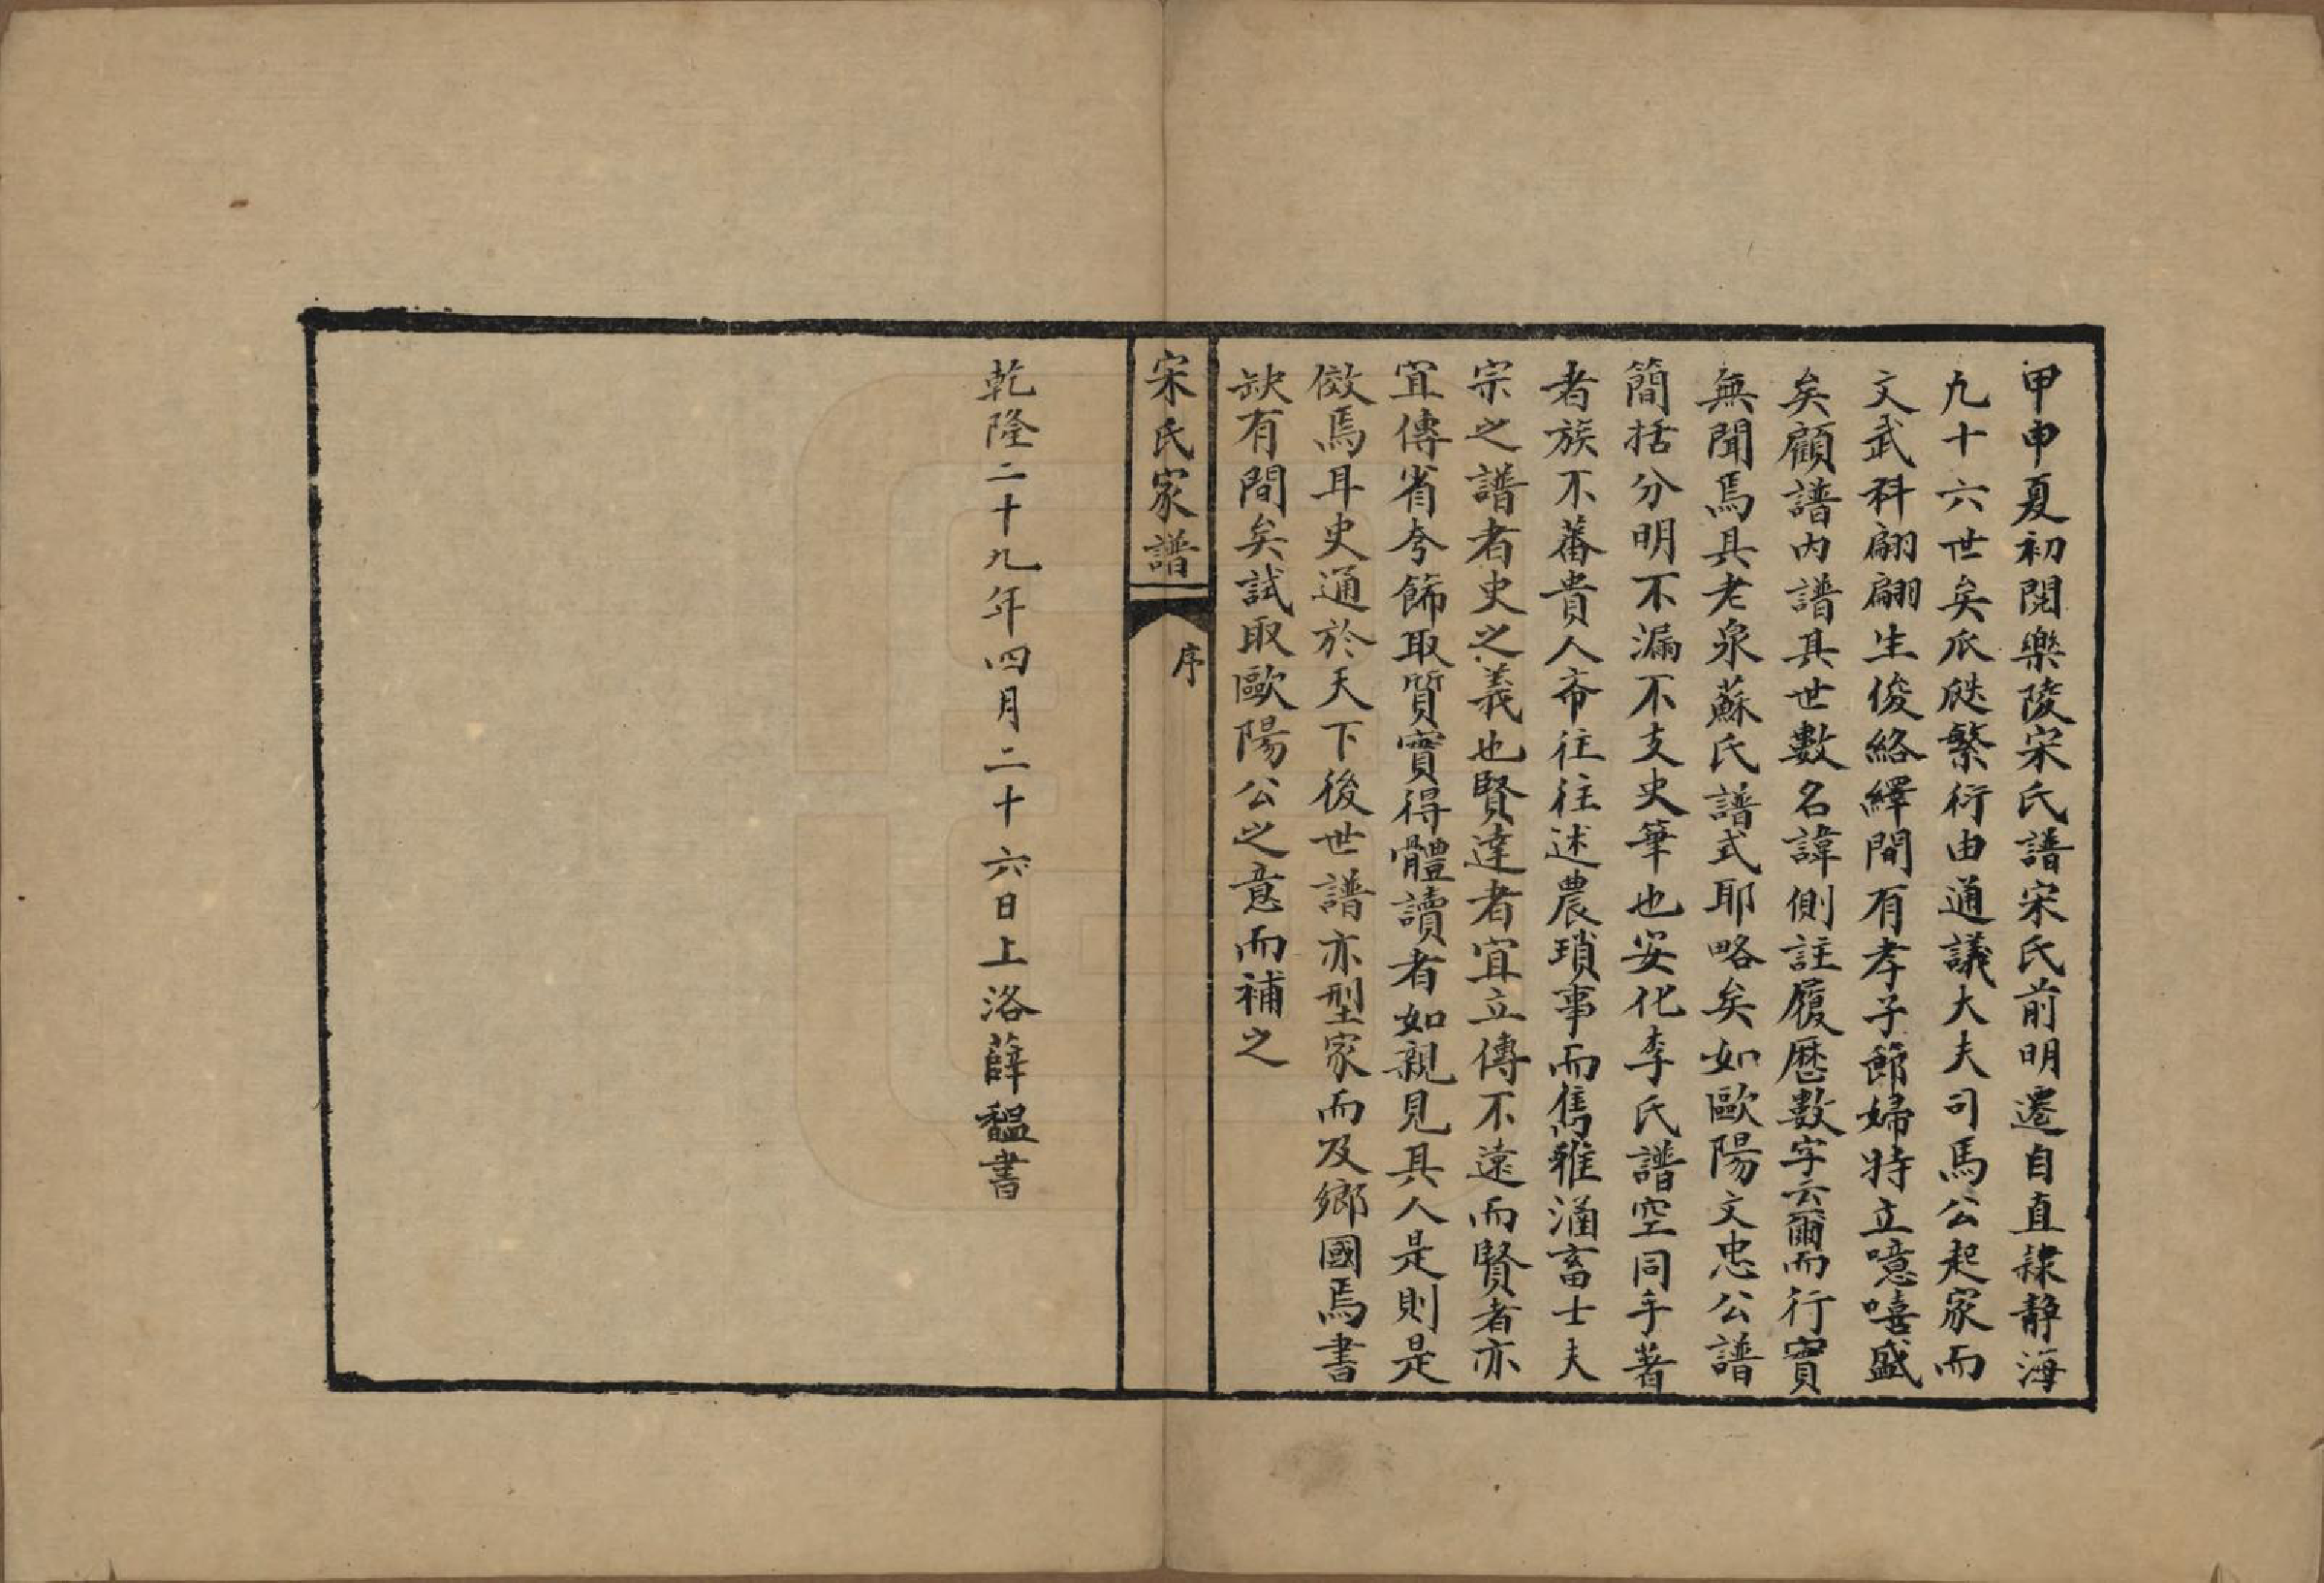 甲申夏初閱樂陵宋氏譜宋氏前明遷自直隸静海
九十六世矣瓜瓞繁衍由通議大夫司馬公起家而
文武科翩翩生俊絡繹間有孝子節婦特立噫嘻盛
矣顧譜内譜其世數名諱側註履歷數字云爾而行實
無聞焉具老泉蘇氏譜式耶略矣如歐陽文忠公譜
簡括分明不漏不支史筆也安化李氏譜空同手著
者族不蕃貴人希往往述農瑣事而雋雅涵畜士夫
宗之譜者史之義也賢達者宜立傳不遠而賢者亦
宜傳省夸飾取質實得體讀者如親見其人是則是
傚焉耳史通於天下後世譜亦型家而及鄉國焉書
缺有間矣試取歐陽公之意而補之
宋氏家譜 序
乾隆二十九年四月二十六日上洛薛韞書